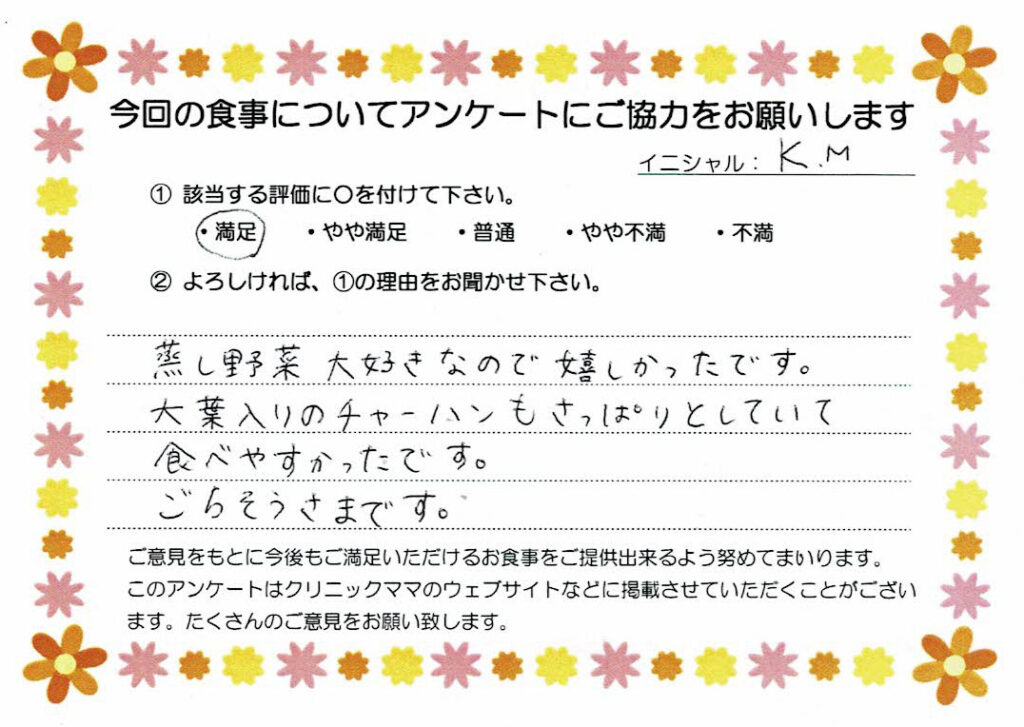 今回の食事についてアンケートにご協力をお願いします
イニシャル： K.M
① 該当する評価に〇を付けて下さい。
・満足 ・やや満足 ・普通 ・やや不満 ・不満
② よろしければ、①の理由をお聞かせ下さい。
蒸し野菜 大好きなので 嬉しかったです。
大葉入りのチャーハンもさっぱりとしていて
食べやすかったです。
ごちそうさまです。
ご意見をもとに今後もご満足いただけるお食事をご提供出来るよう努めてまいります。
このアンケートはクリニックママのウェブサイトなどに掲載させていただくことがござい
ます。たくさんのご意見をお願い致します。